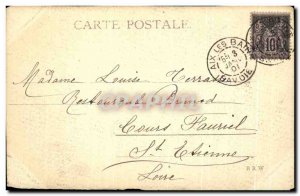 CARTE POSTALE
10
AIX LES BAINS
SAVOIE
Madame Louise Terras
Restaurant
Cours Fauriel
St Etienne
Loire
B R W